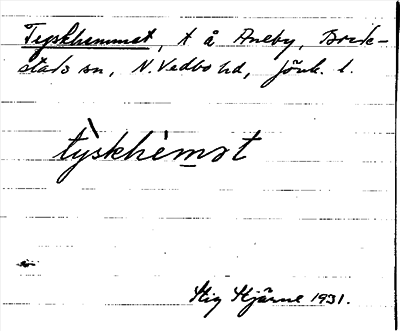 Tyskhemmet, t å Aneby, Brede-
stads sn, N. Vedbo hd, Jönk. l.
tỳskhèmət
Stig Hjärne 1931.